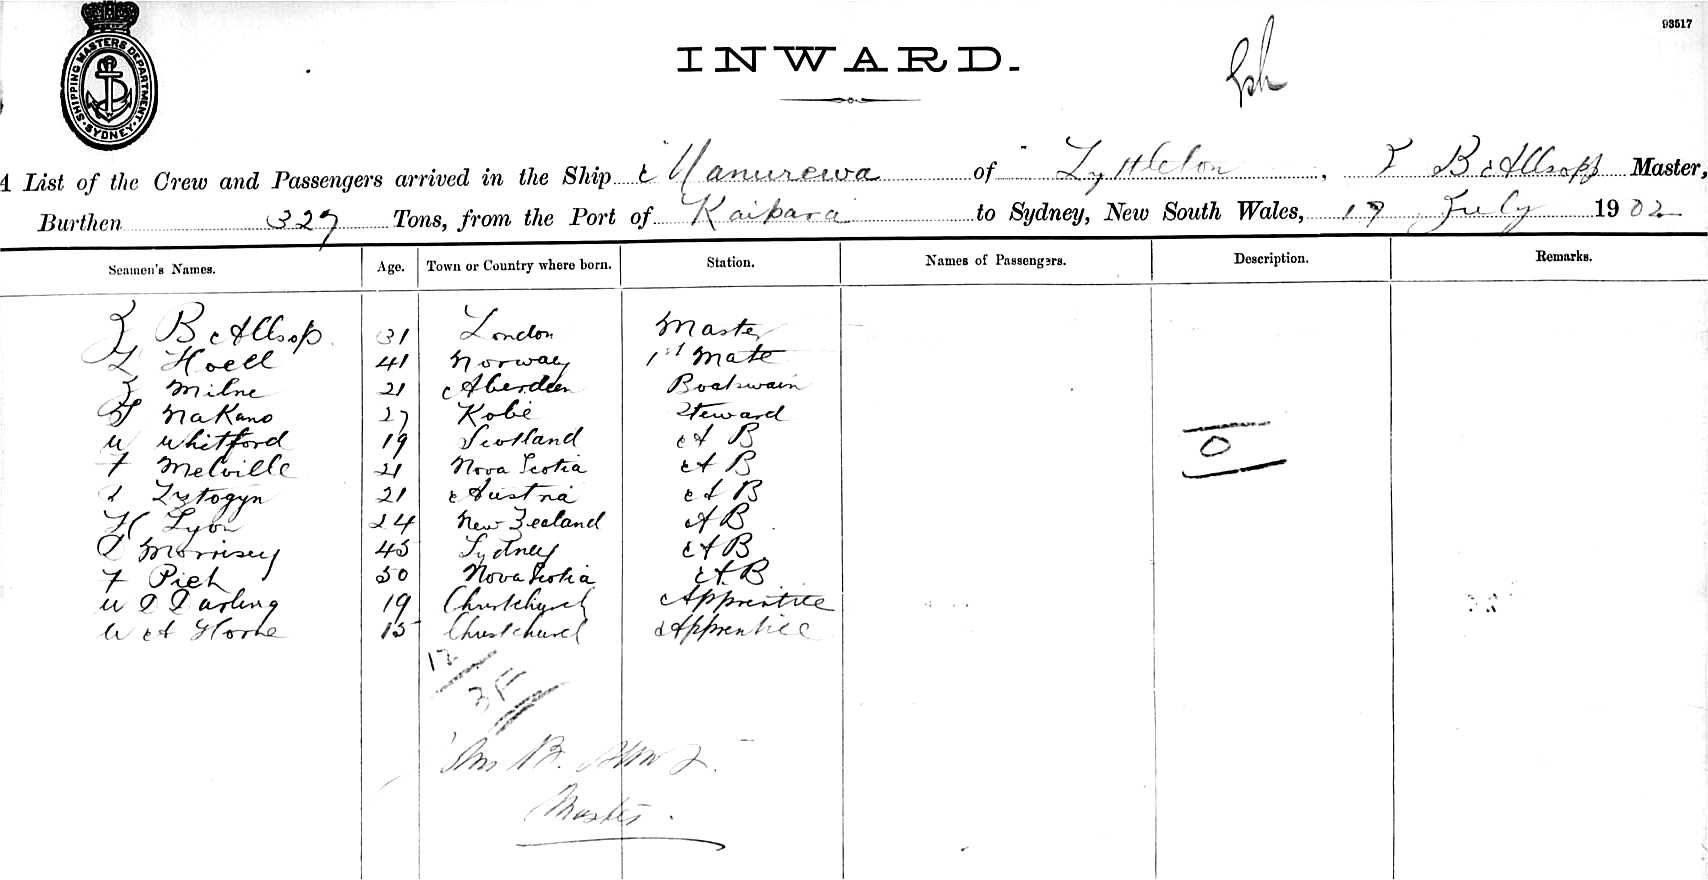 93517
SHIPPING MASTERS DEPARTMENT
SYDNEY
INWARD.
A List of the Crew and Passengers arrived in the Ship Manurewa of Lyttleton, B Allsopp Master,
Burthen 327 Tons, from the Port of Kaipara to Sydney, New South Wales, 17 July 1902
Seamen's Names. Age. Town or Country where born. Station. Names of Passengers. Description. Remarks.
B Allsop 31 London Master
Hoell 41 Norway 1st Mate
Milne 21 Aberdeen Boatswain
Nakano 27 Kobe Steward
W Whitford 19 Scotland A B
F Melville 21 Nova Scotia A B
0
21 Austria A B
H Lyon 24 New Zealand A B
Morrisey 45 Sydney A B
F 50 Nova Scotia A B
W Darling 19 Christchurch Apprentice
W A Horne 15 Christchurch Apprentice
12
Master